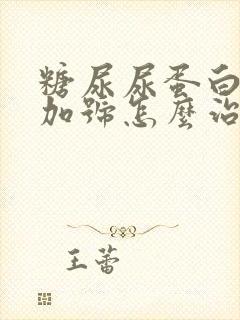 糖尿尿蛋白
加號怎麼治
王蕾